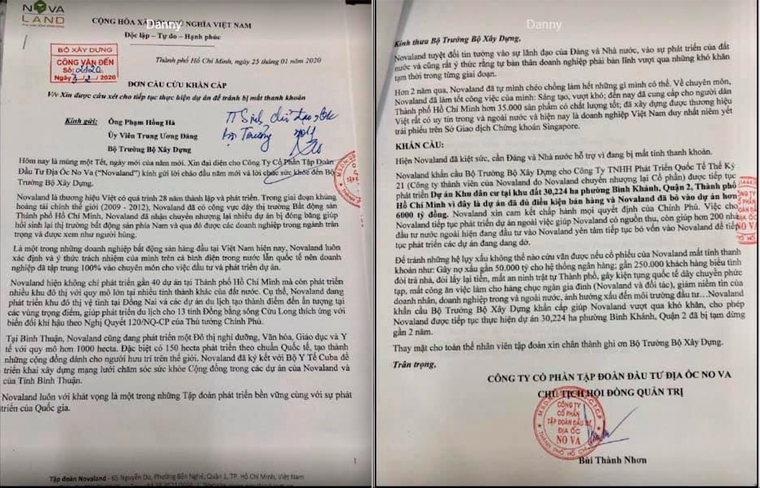 NOVA
LAND
CỘNG HÒA XÃ HỘI CHỦ NGHĨA VIỆT NAM
Danny
Độc lập – Tự do – Hạnh phúc
BỘ XÂY DỰNG
CÔNG VĂN ĐẾN
Số:
Ngày 2020
Thành phố Hồ Chí Minh, ngày 25 tháng 01 năm 2020
ĐƠN CẦU CỨU KHẨN CẤP
V/v Xin được cứu xét cho tiếp tục thực hiện dự án để tránh bị mất thanh khoản
Kính gửi: Ông Phạm Hồng Hà
Ủy Viên Trung Ương Đảng
Bộ Trưởng Bộ Xây Dựng
Hôm nay là mùng một Tết, ngày mới của năm mới. Xin đại diện cho Công ty Cổ Phần Tập Đoàn
Đầu Tư Địa Ốc No Va (“Novaland”) kính gửi lời chào đầu năm mới và lời chúc sức khỏe đến Bộ
Trưởng Bộ Xây Dựng.
Novaland là thương hiệu Việt có quá trình 28 năm thành lập và phát triển. Trong giai đoạn khủng
hoảng tài chính thế giới (2009 - 2012), Novaland đã có công vực dậy thị trường Bất động sản
Thành phố Hồ Chí Minh, Novaland đã nhận chuyển nhượng lại nhiều dự án bị đóng băng giúp
hồi sinh lại thị trường bất động sản phía Nam và qua đó được các doanh nghiệp trong ngành trân
trọng và được xem như người hùng.
Là một trong những doanh nghiệp bất động sản hàng đầu tại Việt Nam hiện nay, Novaland luôn
xác định và ý thức trách nhiệm của mình trên cả bình diện trong nước lẫn quốc tế nên doanh
nghiệp đã tập trung 100% vào chuyên môn cho việc đầu tư và phát triển dự án.
Novaland hiện không chỉ phát triển gần 40 dự án tại Thành phố Hồ Chí Minh mà còn phát triển
nhiều khu đô thị với quy mô lớn tại nhiều tỉnh thành khác của đất nước. Cụ thể, Novaland đang
phát triển khu đô thị vệ tinh tại Đồng Nai và các dự án du lịch tạo thành điểm đến ấn tượng tại
các vùng trọng điểm, giúp phát triển du lịch cho 13 tỉnh Đồng bằng sông Cửu Long thích ứng với
biến đổi khí hậu theo Nghị Quyết 120/NQ-CP của Thủ tướng Chính Phủ.
Tại Bình Thuận, Novaland cũng đang phát triển một Đô thị nghỉ dưỡng, Văn hóa, Giáo dục và Y
tế với quy mô hơn 1000 hecta. Đặc biệt có 150 hecta phát triển theo chuẩn Quốc tế, tạo thành
những cộng đồng dành cho người hưu trí trên thế giới. Novaland đã ký kết với Bộ Y Tế Cuba để
triển khai xây dựng mạng lưới chăm sóc sức khỏe Cộng đồng trong các dự án của Novaland và
của Tỉnh Bình Thuận.
Novaland luôn với khát vọng là một trong những Tập đoàn phát triển bền vững cùng với sự phát
triển của Quốc gia.
1
Tập đoàn Novaland - 65 Nguyễn Du, Phường Bến Nghé, Quận 1, TP. Hồ Chí Minh, Việt Nam
Danny
Kính thưa Bộ Trưởng Bộ Xây Dựng,
Novaland tuyệt đối tin tưởng vào sự lãnh đạo của Đảng và Nhà nước, vào sự phát triển của đất
nước và cũng rất ý thức rằng tự bản thân doanh nghiệp phải bản lĩnh vượt qua những khó khăn
tạm thời trong từng giai đoạn.
Hơn 2 năm qua, Novaland đã tự mình chèo chống làm hết những gì mình có thể. Về chuyên môn,
Novaland đã làm tốt công việc của mình: Sáng tạo, vượt khó; đến nay đã cung cấp cho người dân
Thành phố Hồ Chí Minh hơn 35.000 sản phẩm có chất lượng tốt; đã xây dựng được thương hiệu
Việt rất có uy tín trong và ngoài nước và hiện nay là doanh nghiệp Việt Nam duy nhất niêm yết
trái phiếu trên Sở Giao dịch Chứng khoán Singapore.
KHẨN CẦU:
Hiện Novaland đã kiệt sức, cần Đảng và Nhà nước hỗ trợ vì đang bị mất tính thanh khoản.
Novaland khẩn cầu Bộ Trưởng Bộ Xây Dựng cho Công ty TNHH Phát Triển Quốc Tế Thế Kỷ
21 (Công ty thành viên của Novaland do Novaland chuyển nhượng lại Cổ phần) được tiếp tục
triển khai Dự án Khu dân cư tại khu đất 30,224 ha phường Bình Khánh, Quận 2, Thành phố
Hồ Chí Minh vì đây là dự án đã đủ điều kiện bán hàng và Novaland đã bỏ vào dự án hơn
6000 tỷ đồng. Novaland xin cam kết chấp hành mọi quyết định của Chính Phủ. Việc cho
Novaland tiếp tục phát triển dự án ngoài việc giúp Novaland có nguồn thu, còn giúp hơn 200 nhà
đầu tư nước ngoài hiện đang đầu tư vào Novaland yên tâm tiếp tục bỏ vốn vào Novaland để tiếp
tục phát triển các dự án đang dang dở.
Để tránh những hệ lụy xấu không thể nào cứu vãn được nếu cổ phiếu của Novaland mất tính thanh
khoản như: Gây nợ xấu gần 50.000 tỷ cho hệ thống ngân hàng; gần 250.000 khách hàng biểu tình
đòi trả nhà, đòi lấy lại tiền, mất an ninh trật tự Thành phố, gây kiện tụng quốc tế dây chuyền phức
tạp, mất công ăn việc làm cho hàng chục ngàn gia đình (Novaland và đối tác), giảm niềm tin của
doanh nhân, doanh nghiệp trong và ngoài nước, ảnh hưởng xấu đến môi trường đầu tư…Novaland
khẩn cầu Bộ Trưởng Bộ Xây Dựng khẩn cấp giúp Novaland vượt qua khó khăn, cho phép
Novaland được tiếp tục thực hiện dự án 30,224 ha phường Bình Khánh, Quận 2 đã bị tạm dừng
gần 2 năm.
Thay mặt cho toàn thể nhân viên tập đoàn xin chân thành ghi ơn Bộ Trưởng Bộ Xây Dựng.
Trân trọng,
CÔNG TY CỔ PHẦN TẬP ĐOÀN ĐẦU TƯ ĐỊA ỐC NO VA
CHỦ TỊCH HỘI ĐỒNG QUẢN TRỊ
CÔNG TY
CỔ PHẦN
TẬP ĐOÀN ĐẦU TƯ
ĐỊA ỐC
NO VA
Bùi Thành Nhơn